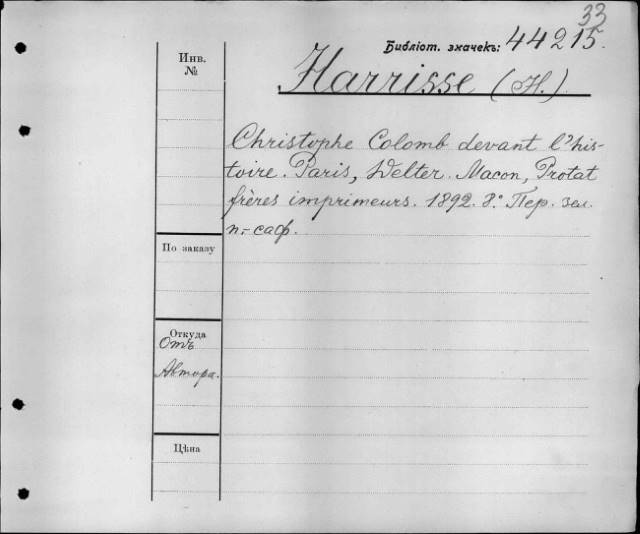 33
Библіот. значекъ: 44215.
Инв.
№
Harrisse (H.)
Christophe Colomb devant l'his-
toire. Paris, Welter. Macon, Protat
frères imprimeurs. 1892. 8.° Пер. зел.
п.-саф.
По заказу
Откуда
Отъ
Автора.
Цѣна